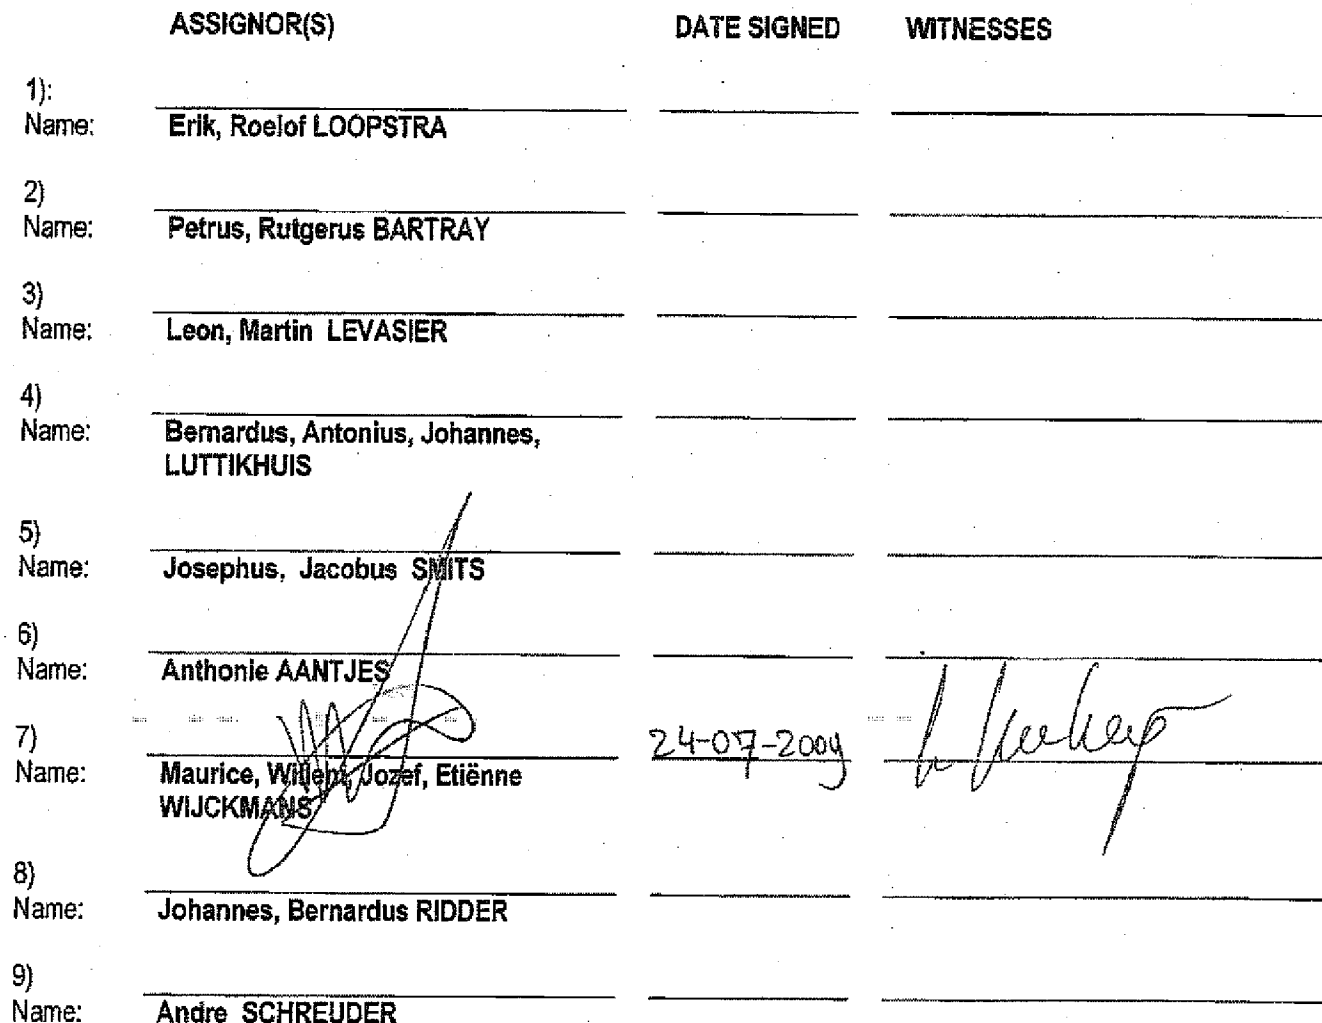 ASSIGNOR(S) DATE SIGNED WITNESSES
1):
Name: Erik, Roelof LOOPSTRA
2)
Name: Petrus, Rutgerus BARTRAY
3)
Name: Leon, Martin LEVASIER
4)
Name: Bernardus, Antonius, Johannes,
LUTTIKHUIS
5)
Name: Josephus, Jacobus SMITS
6)
Name: Anthonie AANTJES
7) 24-07-2009
Name: Maurice, Willem, Jozef, Etiënne
WIJCKMANS
8)
Name: Johannes, Bernardus RIDDER
9)
Name: Andre SCHREUDER